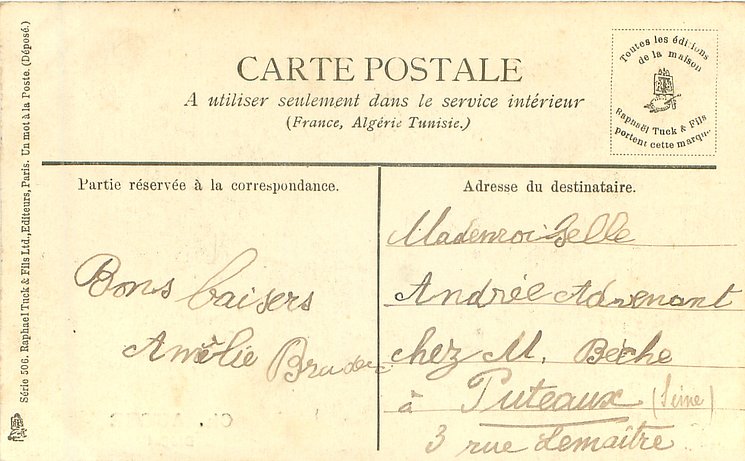 CARTE POSTALE
A utiliser seulement dans le service intérieur
(France, Algérie Tunisie.)
Toutes les éditions
de la maison
Raphaël Tuck & Fils
portent cette marque.
Série 506. Raphael Tuck & Fils Ltd., Editeurs, Paris. Un mot à la Poste. (Déposé.)
Partie réservée à la correspondance.
Bons baisers
Amélie
Adresse du destinataire.
Mademoiselle
Andrée Advenant
chez M. Bèche
à Puteaux (Seine)
3 rue Lemaître